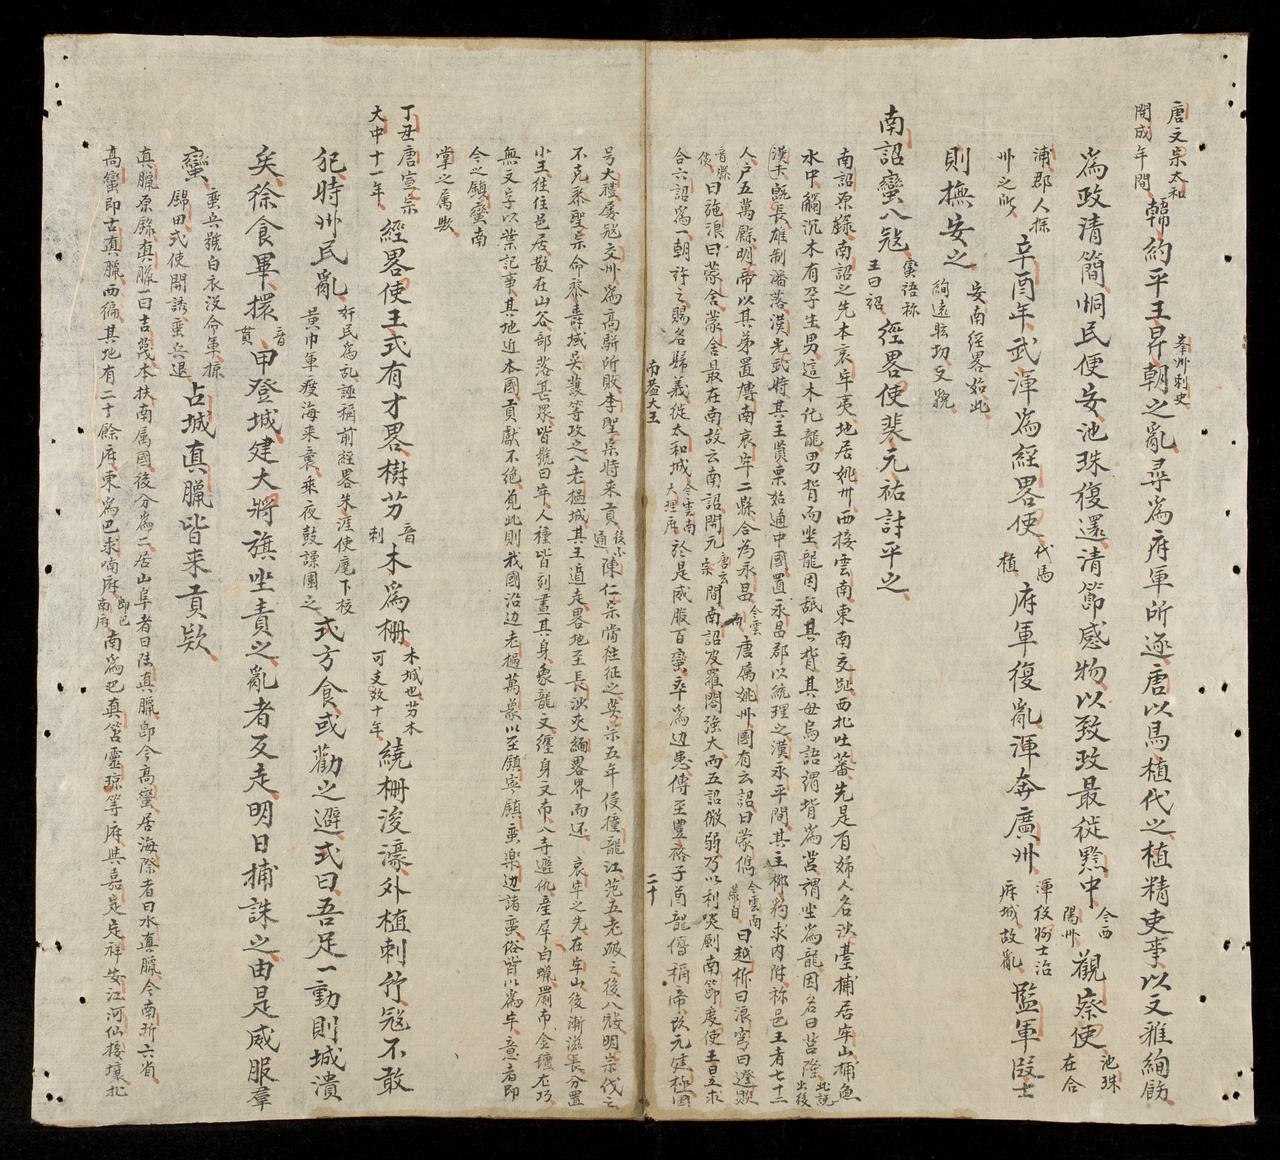 唐文宗太和
開成年間
韓約平王昇朝之亂尋爲府軍所逐唐以馬植代之植精吏事以文雅絢飭
峯州刺史
爲政清簡恫民便安池珠復還清節感物以致政最徙黔中觀察使
今西
陽州
池珠
在合
浦郡人採
州之所
辛酉年武渾爲經畧使府軍復亂渾奔廣州監軍段士
代馬
植
渾役將士治
府城故亂
則撫安之
安南經畧始此
絢遠眩切文貌
南詔蠻入寇經畧使裴元祐討平之
蠻語称
王曰詔
南詔原錄南詔之先本哀牢夷地居姚州西接雲南東南交趾西北吐蕃先是有婦人名沙臺捕居牢山捕魚
水中觸沉木有孕生男這木化龍男背而坐龍因舐其背其母鳥語謂背爲茗謂坐爲龍因名曰茗隆此說出後
漢末旣長雄制潘落漢光武時其主賞栗始通中國置永昌郡以統理之漢永平間其主柳豹求内附称邑王者七十二
人户五萬餘明帝以其弟置博南哀牢二縣合为永昌今雲南唐属姚州國有云詔曰蒙雋今雲南蒙自曰越析曰浪穹曰邆賧
音縢後曰施浪曰蒙舍蒙舍最在南故云南詔開元唐玄宗間南詔皮羅閣強大而五詔微弱乃以利啖劍南節度使王昱求
合六詔爲一朝許之賜名歸義徙太和城今雲南大理府於是威服百蠻卒爲边患傳至豊祐子酋龍僭稱帝改元建極国
南慈大王
二十
号大禮屡寇交州爲高駢所敗李聖宗時来貢後不通陳仁宗嘗往征之英宗五年侵撞龍江范五老破之後入賧明宗代之
不克黎聖宗命黎壽域吴蒙等攻之入老撾城其王遁走畧地至長沙夾緬畧界而还哀牢之先在牢山後漸滋長分置
小王往往邑居散在山谷部落甚眾皆號曰牢人種皆刻畫其身象龍文纏身又有八寺避仇産犀白蠟罽布金纏尤巧
無文字以葉記事其地近本國貢獻不絕覓此則我國沿边老撾萬象以至鎮寕鎮蛮樂边諸蛮俗皆以爲牢意者即
今之鎮蠻南
掌之属歟
丁丑唐宣宗
大中十一年
經畧使王式有才畧樹芀木爲柵繞柵浚濠外植刺竹寇不敢
音
刺
木城也芀木
可支数十年
犯時州民亂式方食或勸之避式曰吾足一動則城潰
奸民爲乱誣稱前經畧朱涯使麾下校
黄巾軍渡海来襲乘夜鼓譟圍之
矣徐食畢擐甲登城建大將旗坐責之亂者反走明日捕誅之由是威服羣
音
貫
蠻占城真臘皆来貢欵
蛮兵號白衣没命軍掠
錦田式使開誘蛮兵退
真臘原錄真臘一曰吉蔑本扶南属國後分爲二居山阜者曰陆真臘即今高蠻居海際者曰水真臘今南圻六省
高蠻即古真臘西徧其地有二十餘府東爲巴求喃府即巴南府南爲巴真筥靈琼等府與嘉定定祥安江河仙接壤北